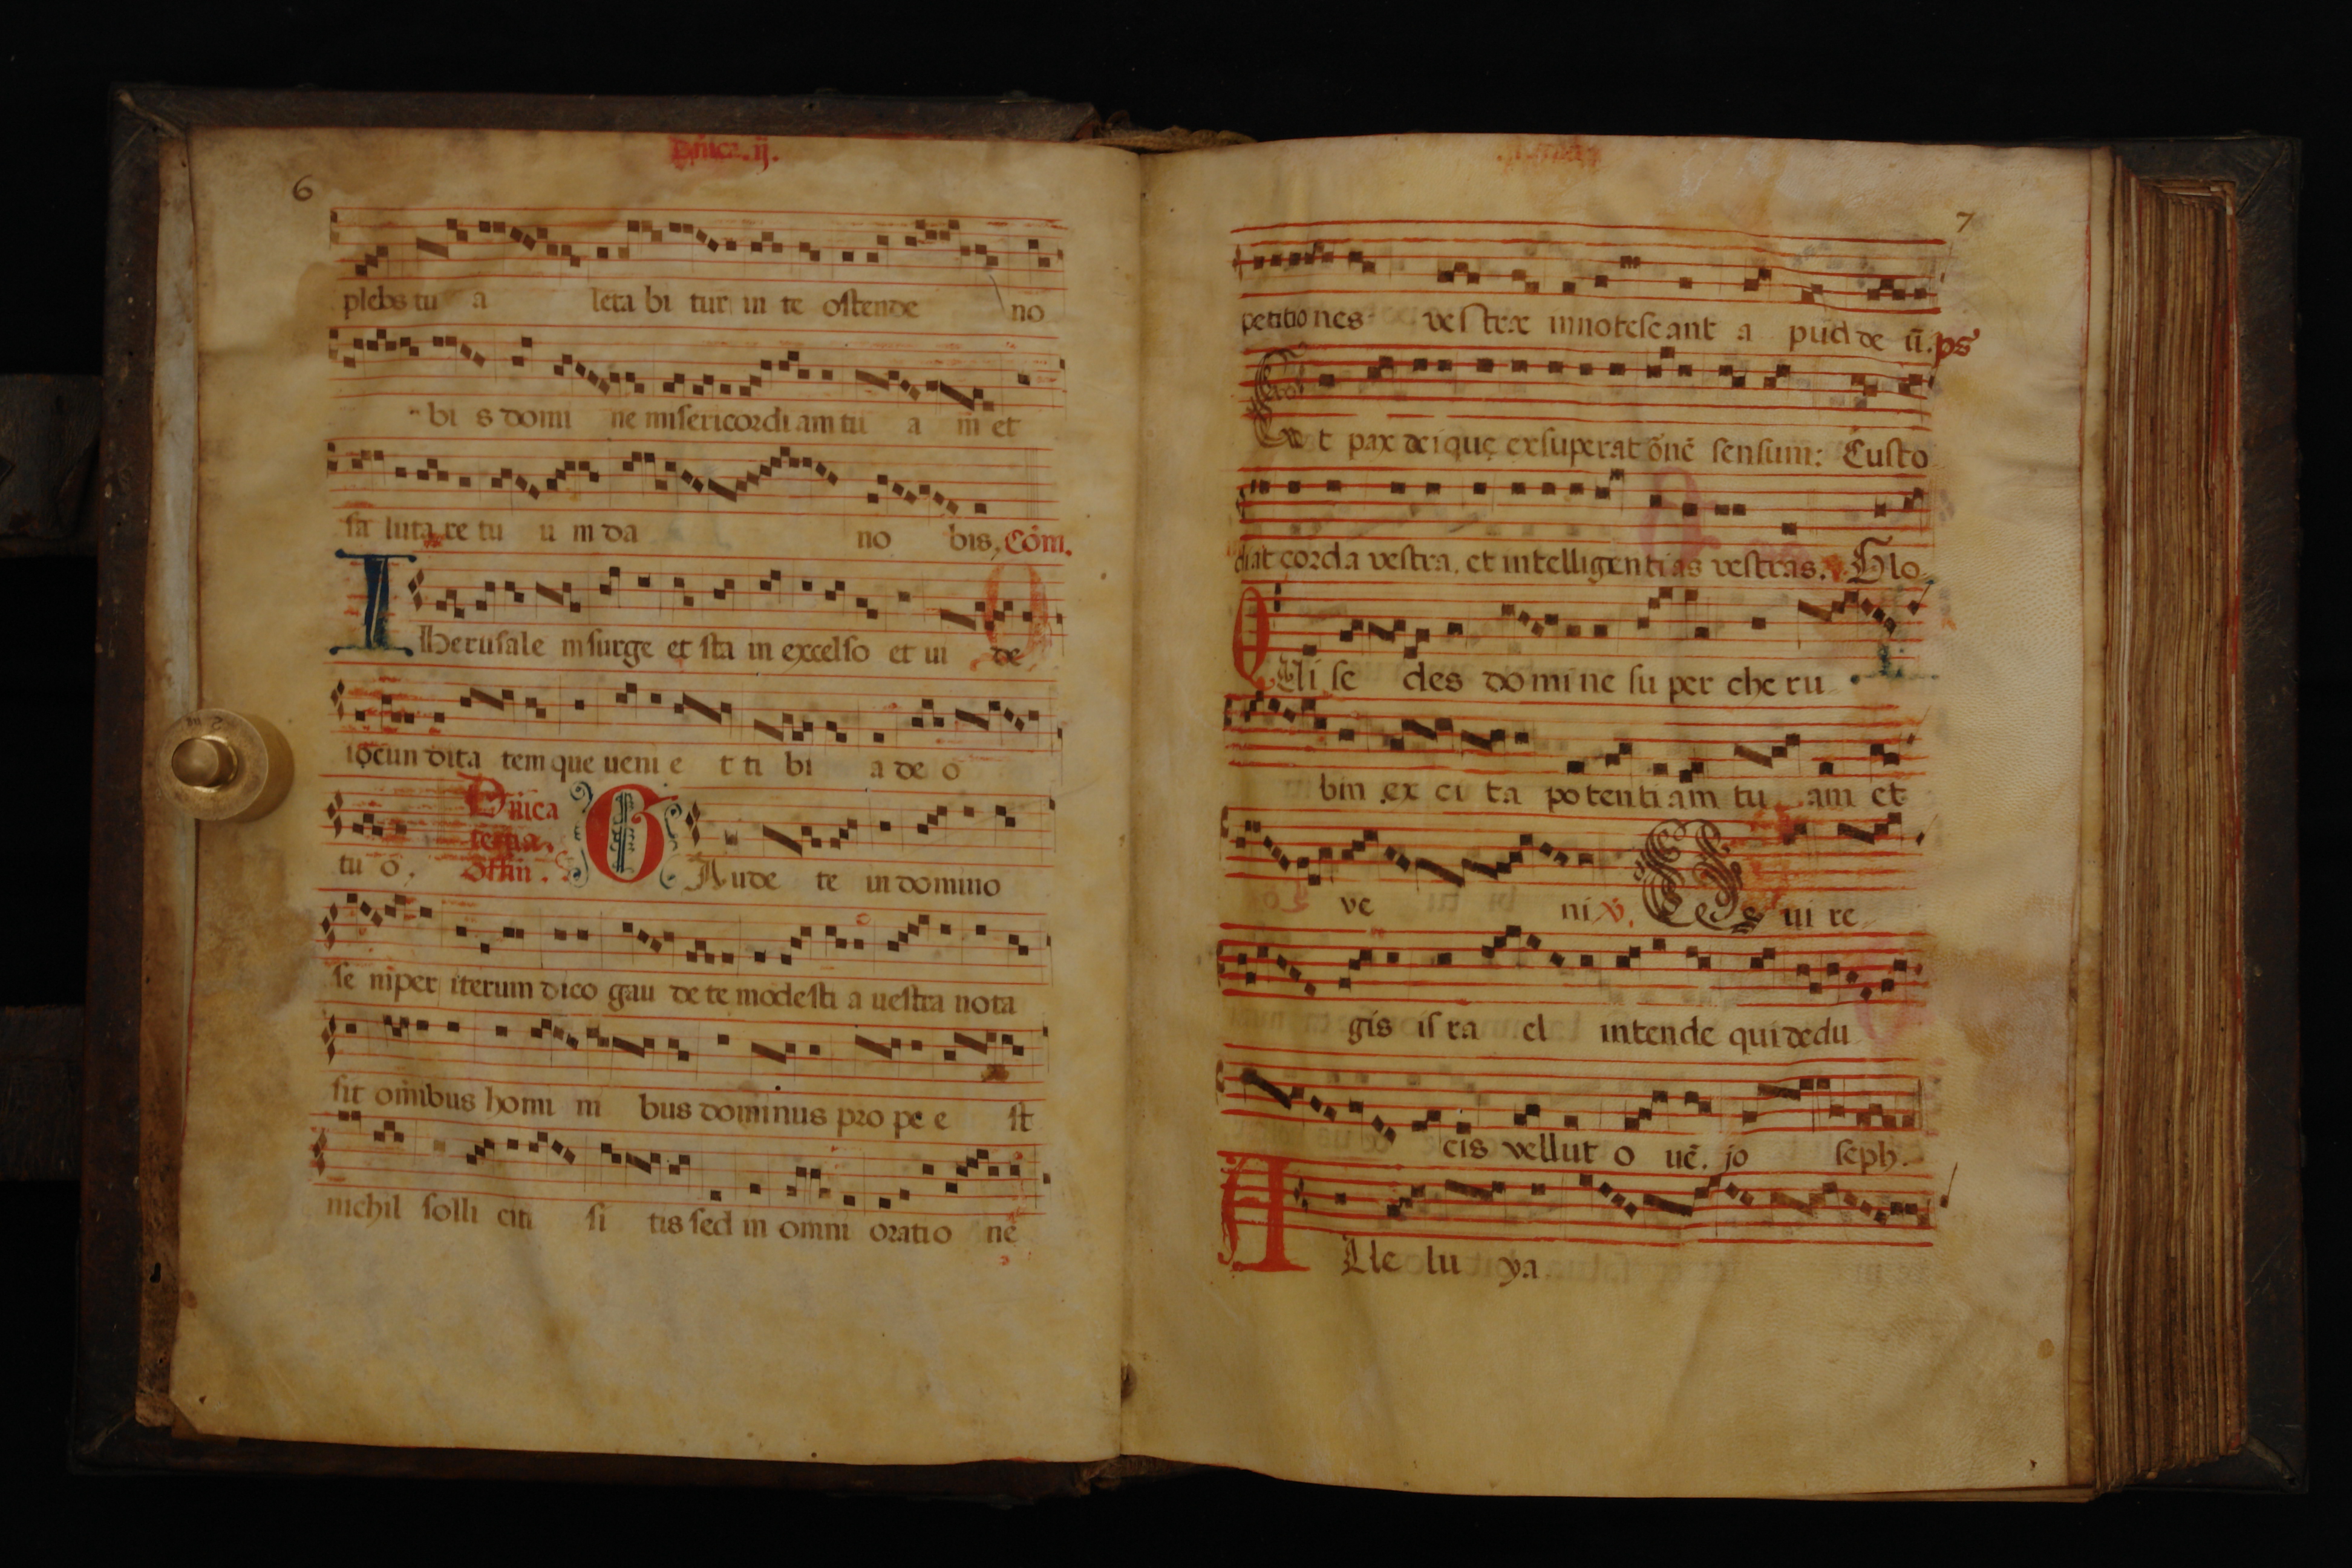 Dñica. ij.
6
plebs tu a leta bi tur in te ostende no
bi s domi ne misericordi am tu a m et
sa luta re tu u m da no bis, Cōm.
I Iherusale m surge et sta in excelso et ui de
iocun dita tem que ueni e t ti bi a de o
tu o. Dñica tertia. Offiñ. G Aude te in domino
se mper iterum dico gau de te modesti a uestra nota
sit omĩbus homi ni bus dominus pro pe e st
nichil solli citi si tis sed in omni oratio ne
7
petitio nes ve stræ innotescant a pud de ũ. ps
Et pax dei quę exsuperat õnẽ sensum: Custo
diat corda vestra. et intelligentias vestras. Glo
Q Ui se des domine su per che ru
bin ex ci ta potenti am tu am et
ve ni ꝟ. Q ui re
gis is ra el intende qui dedu
cis vellut o uẽ. jo seph.
A Lle lu ya